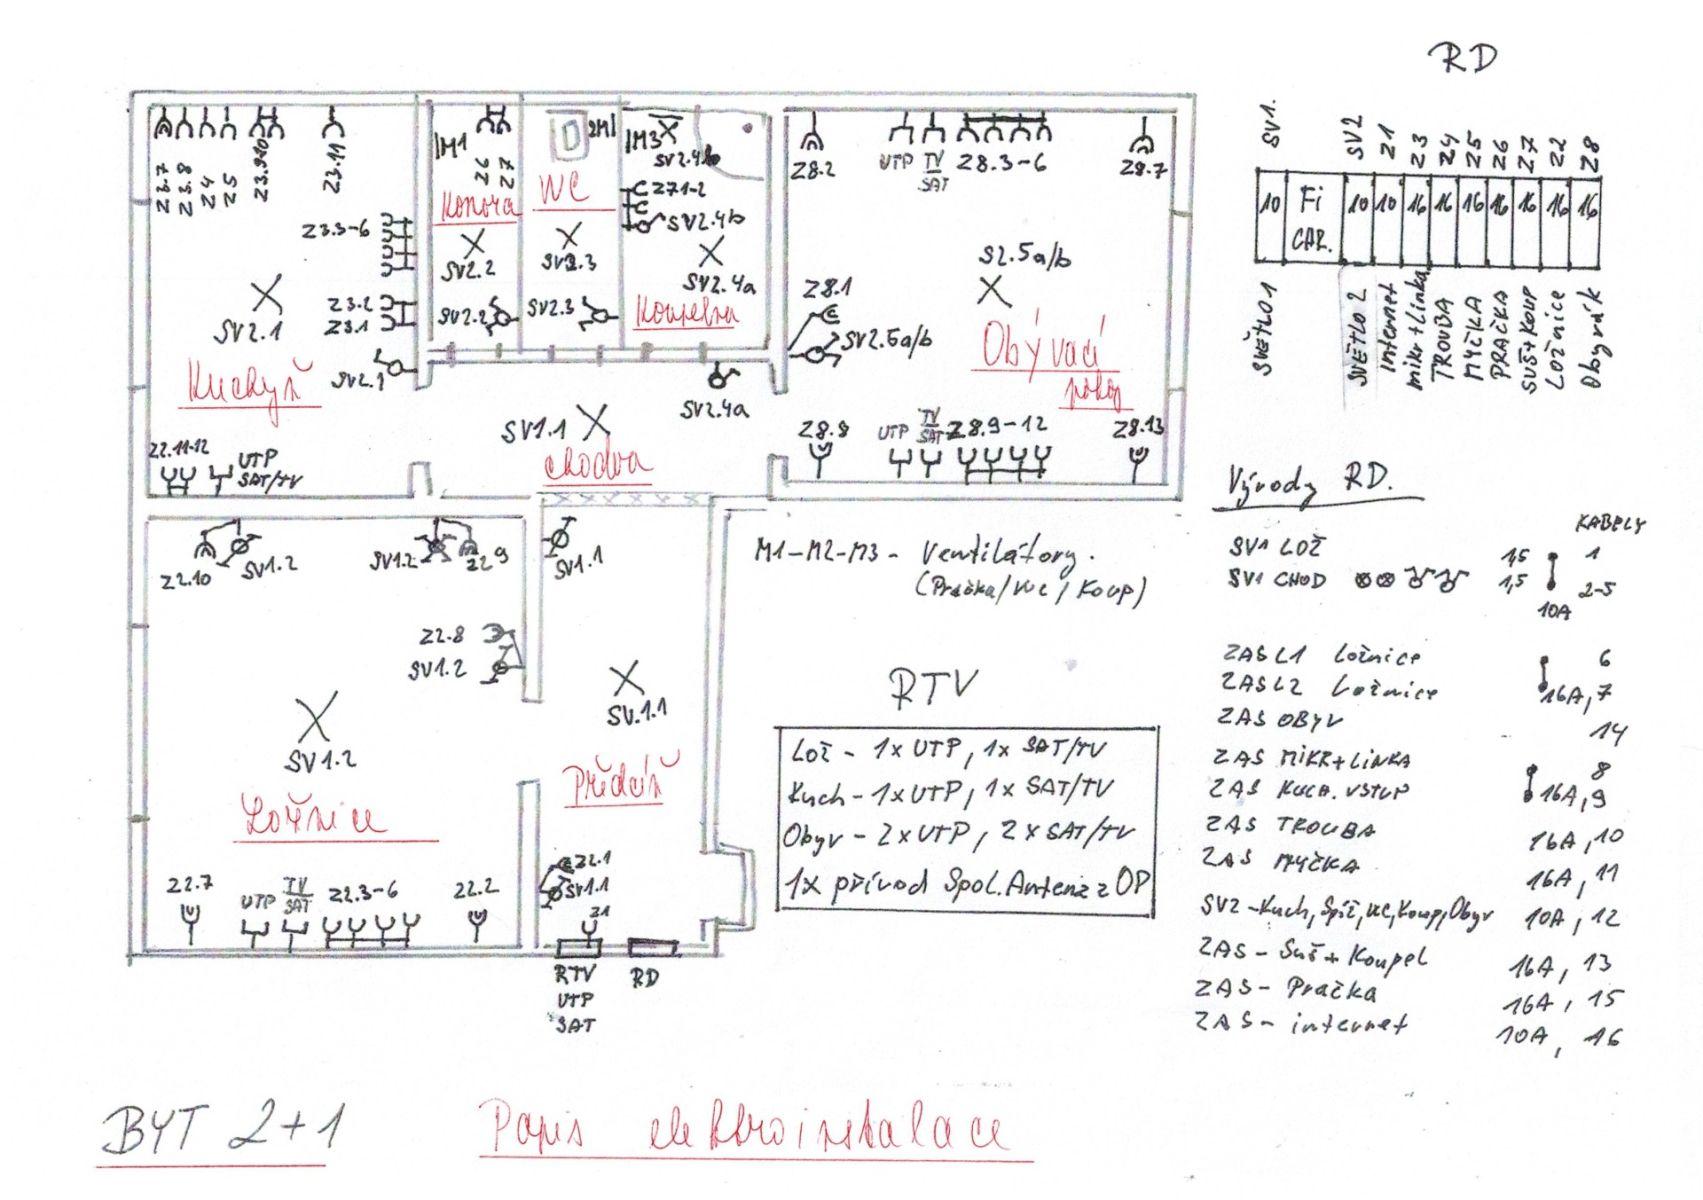 RD
SV1.
SV2
Z1
Z3
Z4
Z5
Z6
Z7
Z2
Z8
10 Fi CAR. 10 10 16 16 16 16 16 16 16
SVĚTLO1
SVĚTLO 2
Internet
mikr+Linka
TROUBA
MYČKA
PRAČKA
SUŠ+KOUP
Ložnice
Obývák
Z3.7
Z3.8
Z4
Z5
Z3.9 10
Z3.11
Z3.3-6
Z3.2
Z3.1
SV2.1
SV2.1
Kuchyň
Z2.11-12
UTP
SAT/TV
M1
Z6
Z7
Komora
SV2.2
SV2.2
2M
WC
SV2.3
SV2.3
M3
SV2.4b
Z7.1-2
SV2.4b
SV2.4a
Koupelna
SV2.4a
SV1.1
chodba
Z8.2
UTP
TV
SAT
Z8.3-6
Z8.7
S2.5a/b
Z8.1
SV2.5a/b
Obývací
pokoj
Z8.8
UTP
TV
SAT
Z8.9-12
Z8.13
Z2.10
SV1.2
SV1.2
Z2.9
SV1.1
Z2.8
SV1.2
SV1.2
Ložnice
SV.1.1
Předsíň
Z2.7
UTP
TV
SAT
Z2.3-6
Z2.2
Z2.1
SV1.1
Z1
RTV
UTP
SAT
RD
M1-M2-M3- Ventilátory.
(Pračka/WC/Koup)
RTV
Lož - 1x UTP, 1x SAT/TV
Kuch - 1xUTP, 1x SAT/TV
Obyv - 2xUTP, 2x SAT/TV
1x přívod Spol.Antena z OP
Vývody RD.
KABELY
SV1 LOŽ 1,5 1
SV1 CHOD 1,5 2-5
10A
ZAS L1 Ložnice 6
ZAS L2 Ložnice 16A, 7
ZAS OBYV 14
ZAS MIKR+LINKA 8
ZAS KUCH. VSTUP 16A, 9
ZAS TROUBA 16A, 10
ZAS MYČKA 16A, 11
SV2-Kuch, Spíž, WC, Koup, Obyv 10A, 12
ZAS - Suš+Koupel 16A, 13
ZAS - Pračka 16A, 15
ZAS - internet 10A, 16
BYT 2+1
Popis elektroinstalace